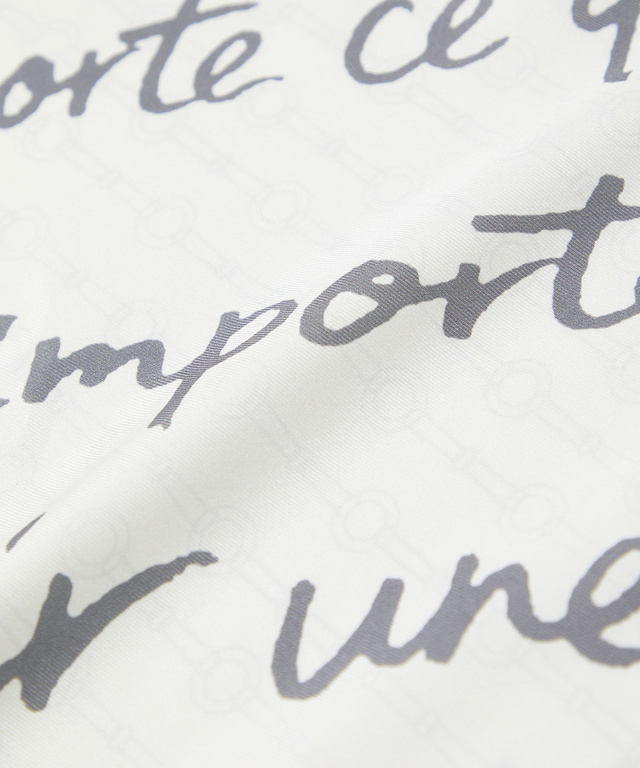 orte ce q
import
r une